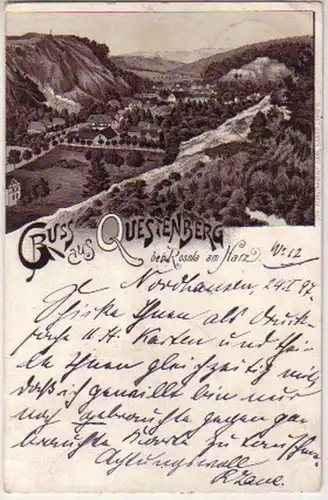 Gruss aus Questenberg
bei Rossla am Harz.
No 12
Nordhausen 24.I 97.
Schicke Ihnen als Druck-
sache 11 H. Karten und thei-
le Ihnen gleichzeitig mit,
daß ich gewillt bin nur
noch gebrauchte gegen ge-
brauchte Karte zu tauschen.
Achtungsvoll